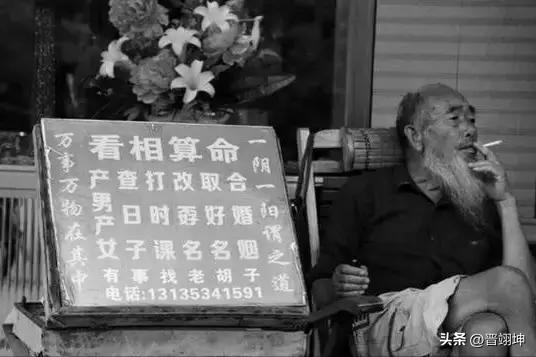 看相算命
一阴一阳谓之道
万事万物在其中
产男产女
查日子
打时课
改孬名
取好名
合婚姻
有事找老胡子
电话:13135341591
头条 @晋翊坤